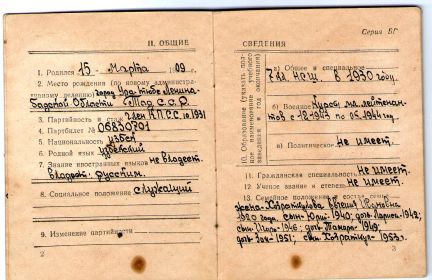 II. ОБЩИЕ
1. Родился 15 - Марта 1909 г.
2. Место рождения (по новому админист-
ративному делению) город Ура-тюбе Ленина-
бадской Области Тад. С.С.Р.
3. Партийность и стаж член К.П.С.С. 10.1931
4. Партбилет № 06830701
5. Национальность узбек
6. Родной язык узбекский
7. Знание иностранных языков не владеет
владеет русским.
8. Социальное положение служащий
9. Изменение партийности
2
Серия БГ
СВЕДЕНИЯ
10. Образование (указать полное наименование учебного заведения и год окончания)
а) Общее и специальное
7 кл. НСШ в 1930 году.
б) Военное Курсы мл. лейтенан-
тов с 12-1943 по 05.1944 год.
в) Политическое Не имеет.
11. Гражданская специальность Не имеет.
12. Ученое звание и степень Не имеет.
13. Семейное положение и состав семьи
жена-
1920 года. сын Юрий-1940; дочь Лариса-1942;
сын Игорь-1946; дочь Тамара-1949;
дочь Зоя-1951; сын 1953 г.
3